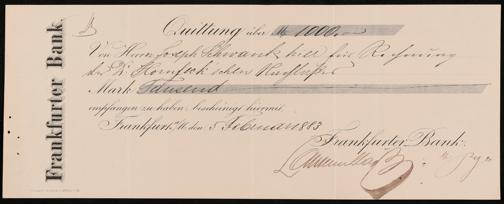 Frankfurter Bank
Quittung über M 1000
Von Herrn Joseph Schwank hier für Rechnung
des Dr. Kornfeck'schen Nachlasses
Mark Tausend
empfangen zu haben, bescheinigt hiermit,
Frankfurt a/M den 5 Februar 1883
Frankfurter Bank.